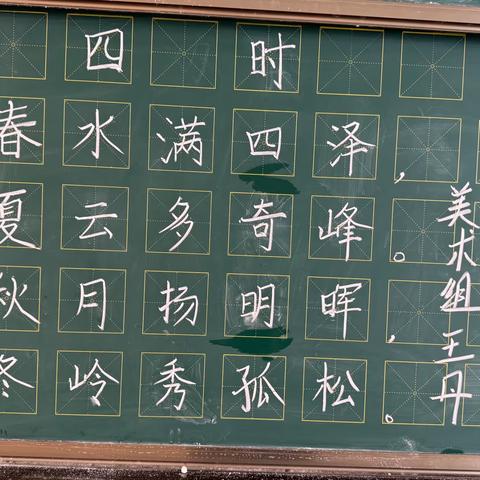 四时
春水满四泽，
夏云多奇峰。
秋月扬明晖，
冬岭秀孤松。
美术组 王丹